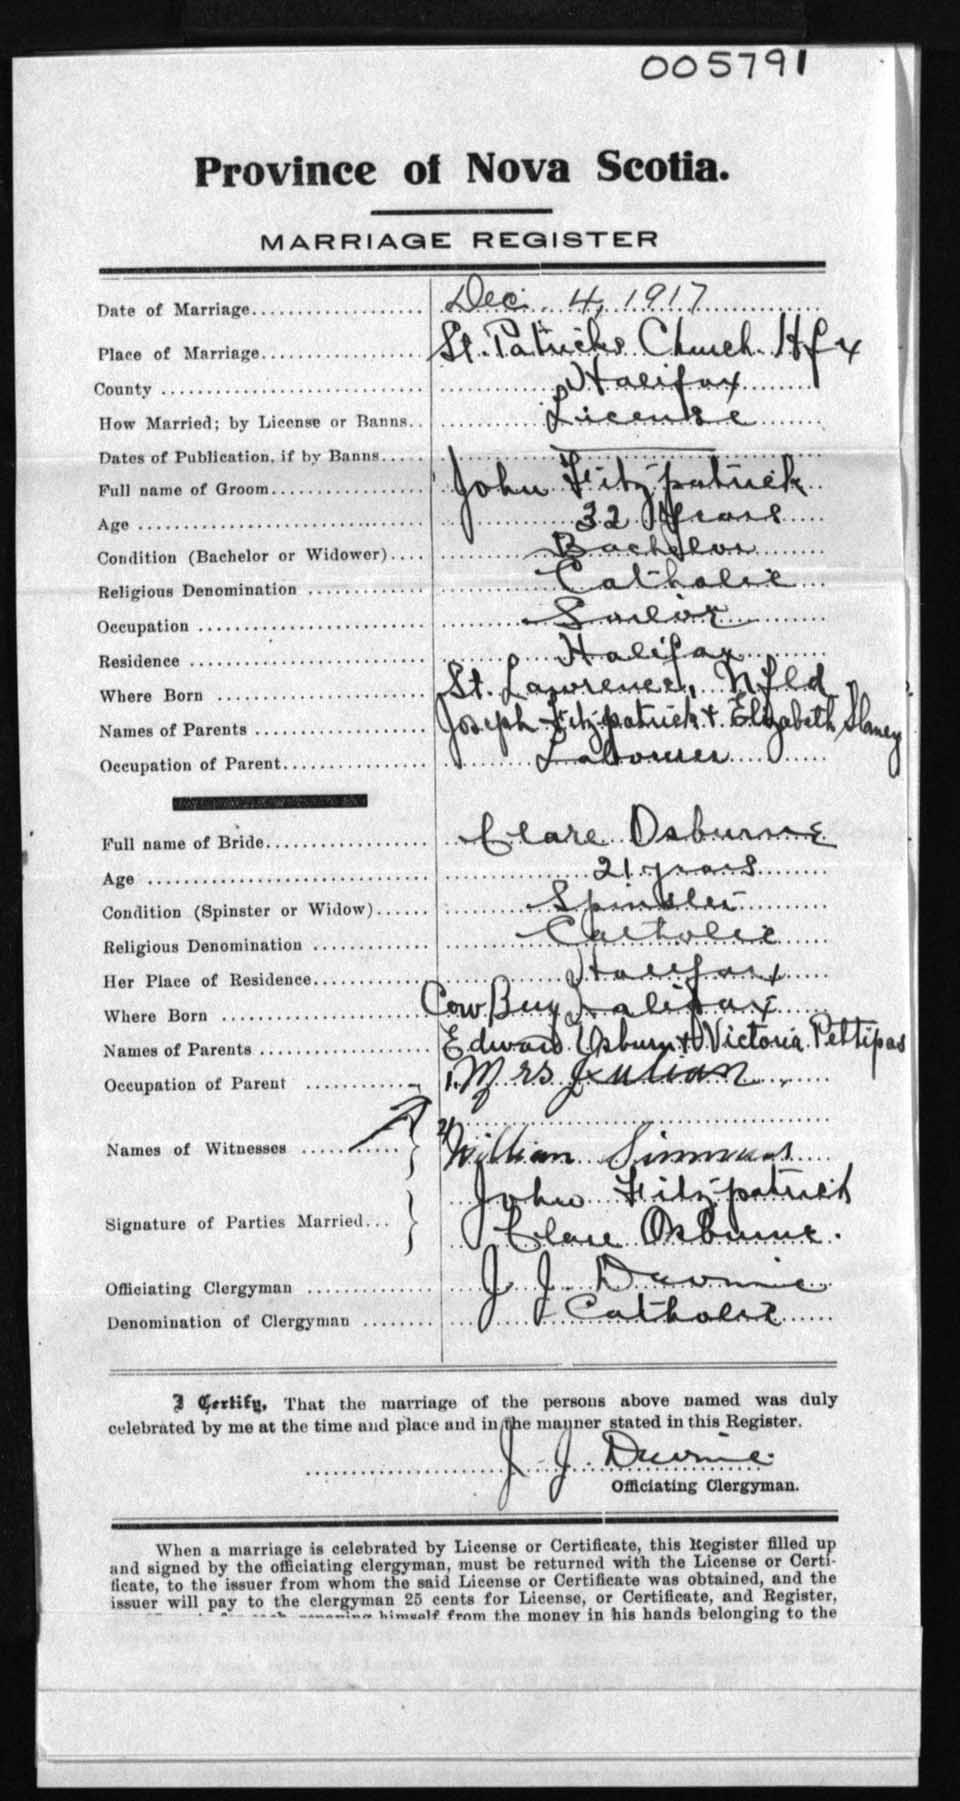 005791
Province of Nova Scotia.
MARRIAGE REGISTER
Date of Marriage Dec. 4, 1917
Place of Marriage St. Patricks Church Hfx
County Halifax
How Married; by License or Banns License
Dates of Publication, if by Banns
Full name of Groom John Fitzpatrick
Age 32 Years
Condition (Bachelor or Widower) Bachelor
Religious Denomination Catholic
Occupation Sailor
Residence Halifax
Where Born St. Lawrence, Nfld
Names of Parents Joseph Fitzpatrick + Elizabeth Slaney
Occupation of Parent Labourer
Full name of Bride Clare Osburne
Age 21 years
Condition (Spinster or Widow) Spinster
Religious Denomination Catholic
Her Place of Residence Halifax
Where Born Cow Bay Halifax
Names of Parents Edward Osburn + Victoria Pettipas
Occupation of Parent 1. Mrs Julian
Names of Witnesses 2/ William Simmons
John Fitzpatrick
Signature of Parties Married Clare Osburne.
Officiating Clergyman J J
Denomination of Clergyman Catholic
I Certify, That the marriage of the persons above named was duly
celebrated by me at the time and place and in the manner stated in this Register.
J. J.
Officiating Clergyman.
When a marriage is celebrated by License or Certificate, this Register filled up
and signed by the officiating clergyman, must be returned with the License or Certi-
ficate, to the issuer from whom the said License or Certificate was obtained, and the
issuer will pay to the clergyman 25 cents for License, or Certificate, and Register,
himself from the money in his hands belonging to the